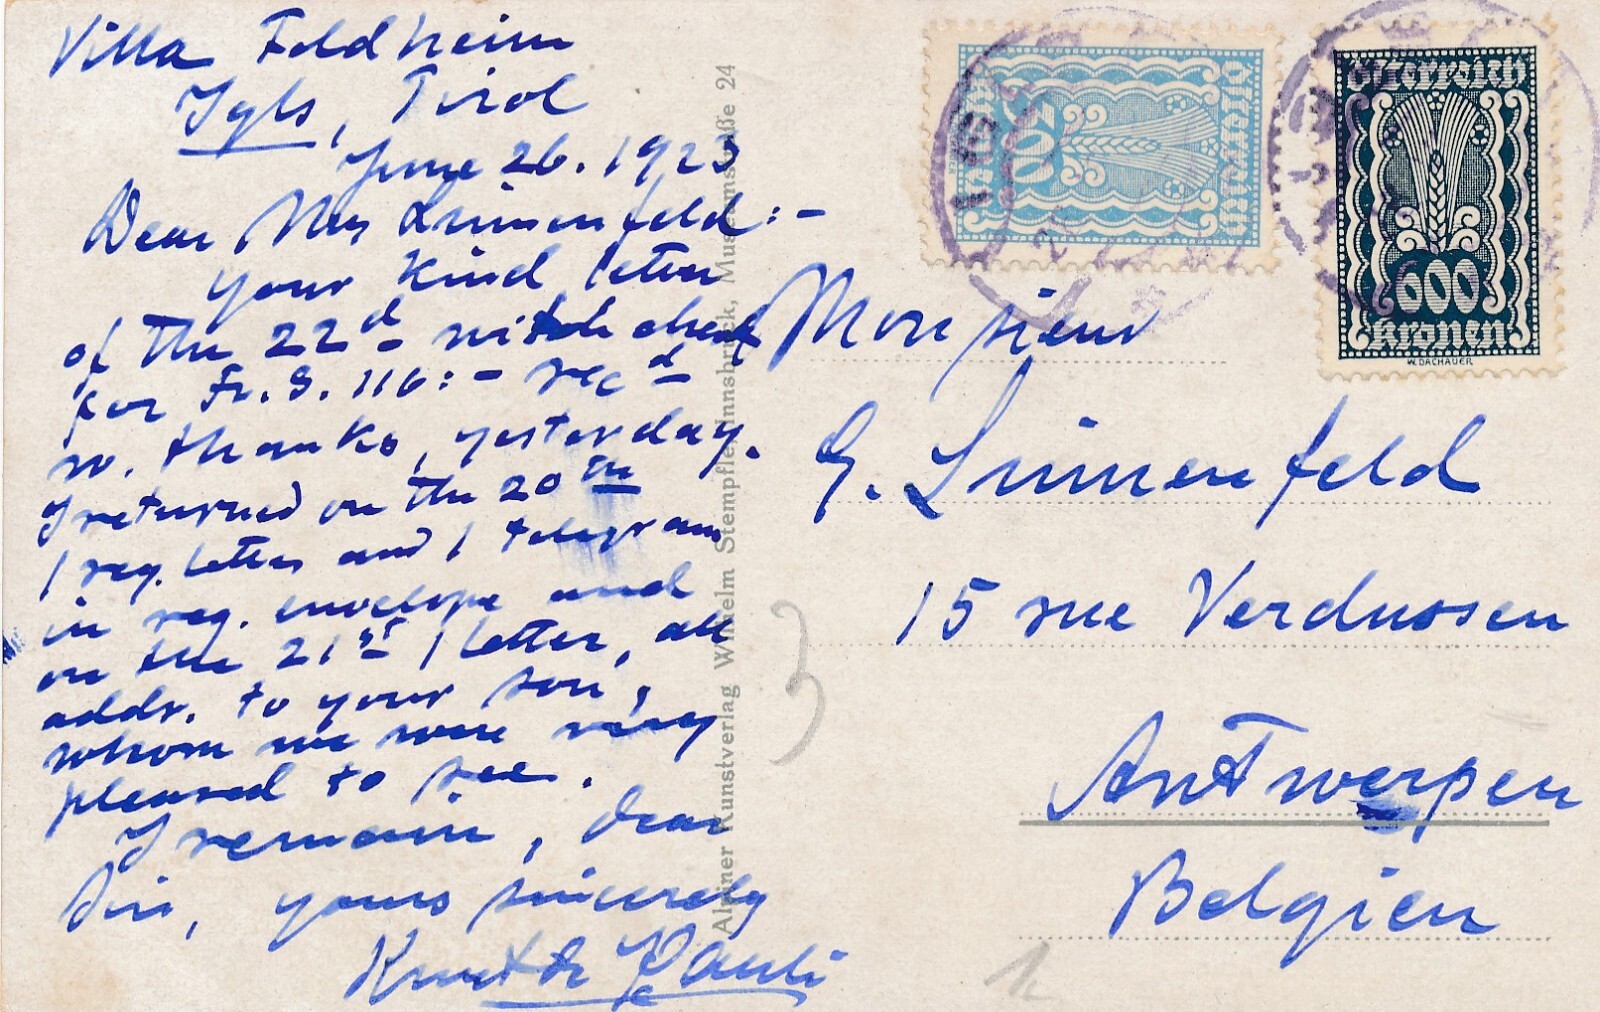 Villa Feldheim
Igls, Tirol
June 26. 1923
Dear Mr Linnenfeld:-
your kind letter
of the 22d with check
for Fr. S. 116:- recd
w. thanks, yesterday.
I returned on the 20th
1 reg. letter and 1 telegram
in reg. envelope and
on the 21st 1 letter, all
addr. to your son,
whom we were very
pleased to see.
I remain, dear
Sir, yours sincerely
Pauli
Alpiner Kunstverlag Wilhelm Stempfle, Innsbruck, Museumstraße 24
Österreich
Kronen
400
Österreich
600
Kronen
W. DACHAUER
Monsieur
G. Linnenfeld
15 rue Verdussen
Antwerpen
Belgien
3